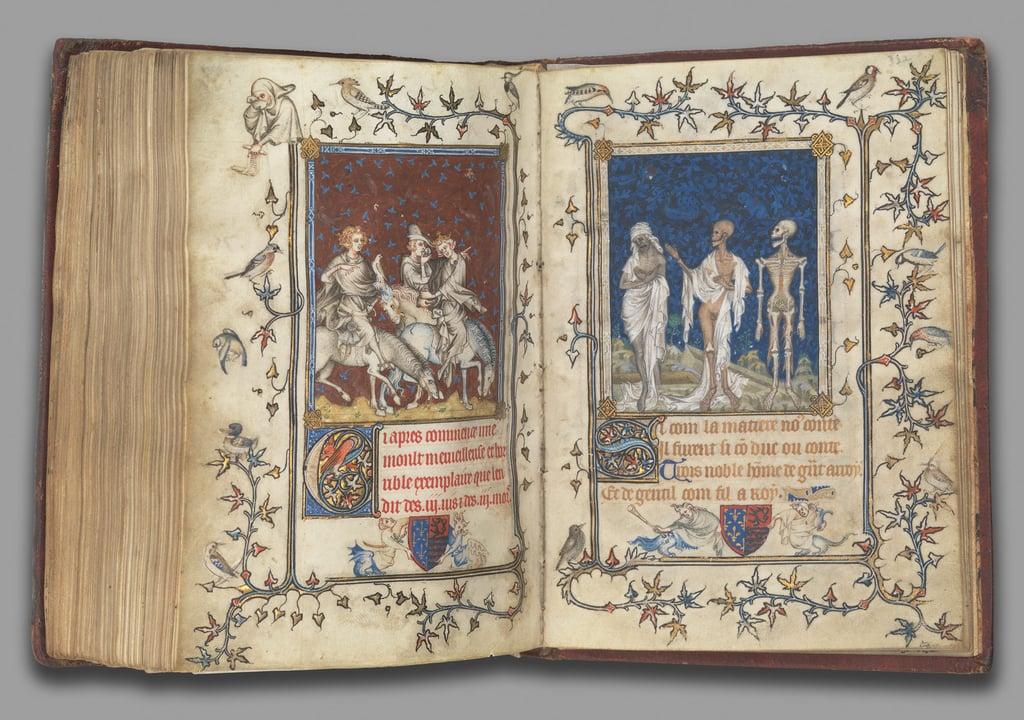 Ci apres commence une
moult merueilleuse et hor
rible exemplaire que len
dit des .iij. uis ⁊ des .iij. mors
Si com la matiere no conte
Il furent si cō duc ou conte
Trois noble hōme de grāt arroy
Et de gentil com fil a Roy.